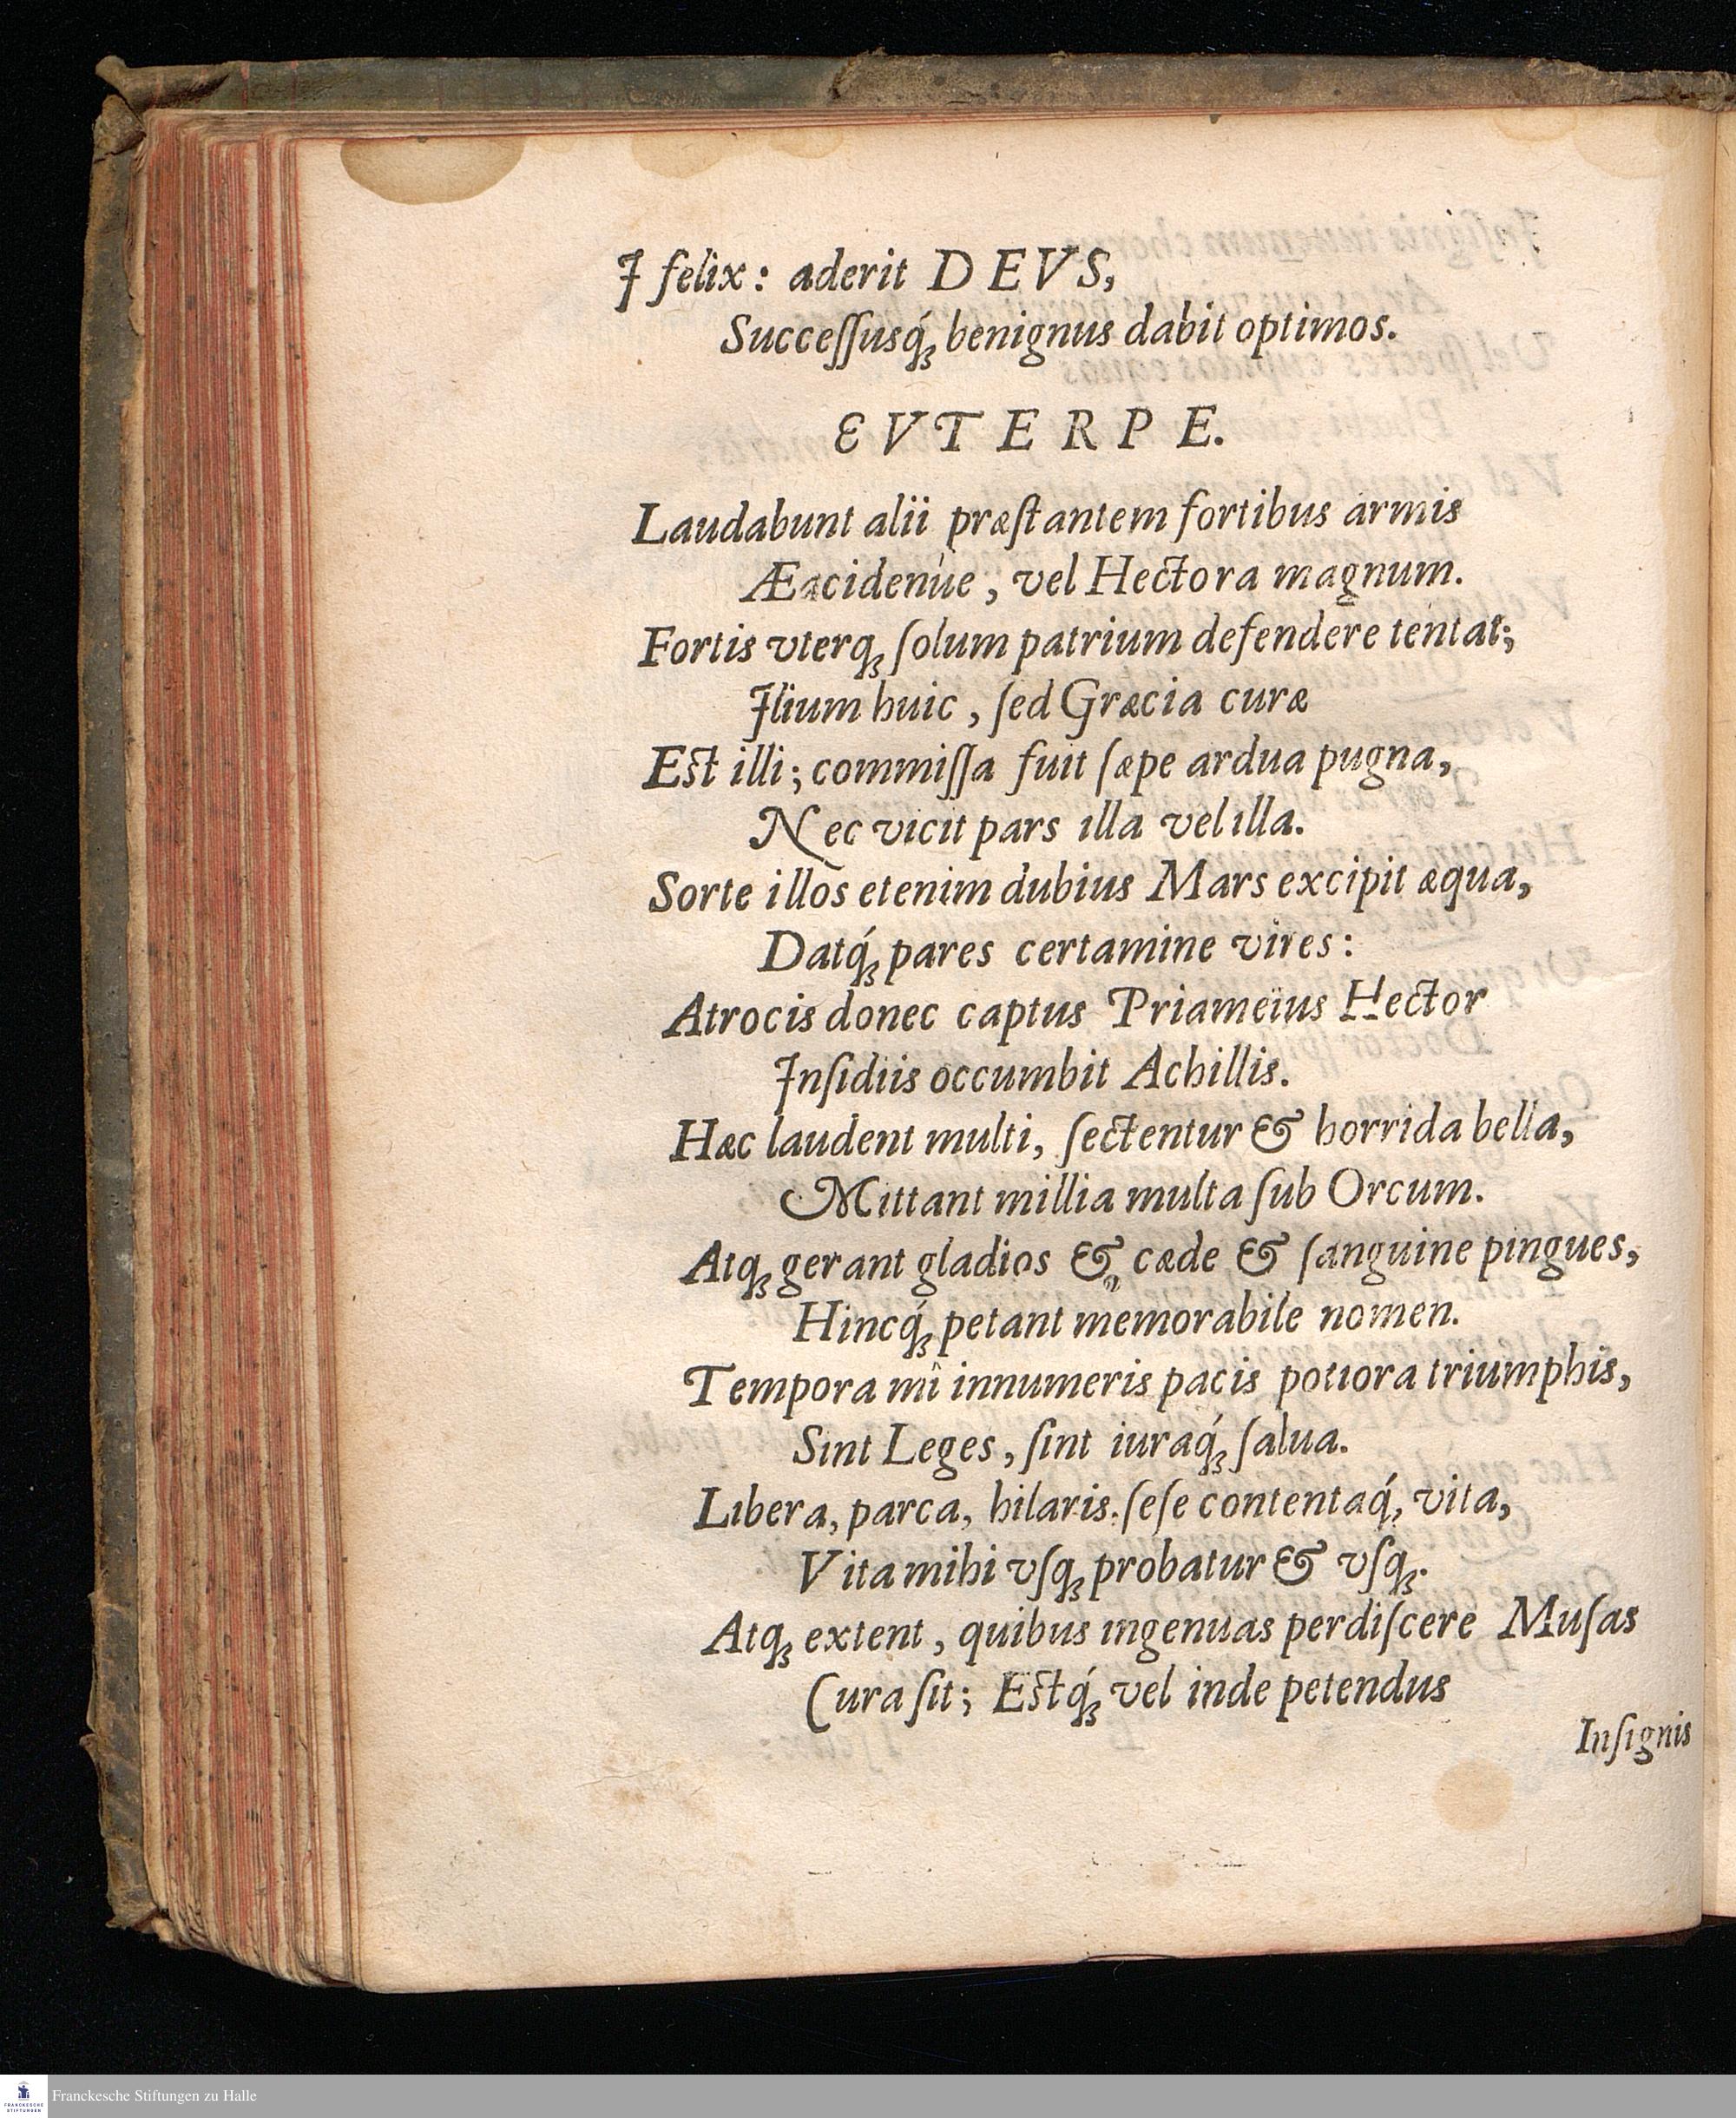 I felix: aderit DEVS,
Succeſſusq́ꝫ benignus dabit optimos.
EVTERPE.
Laudabunt alii præſtantem fortibus armis
Æacidenùe, vel Hectora magnum.
Fortis vterqꝫ ſolum patrium defendere tentat;
Ilium huic, ſed Græcia curæ
Eſt illi; commiſſa fuit ſæpe ardua pugna,
Nec vicit pars illa vel illa.
Sorte illos etenim dubius Mars excipit æqua,
Datq́ꝫ pares certamine vires:
Atrocis donec captus Priameïus Hector
Inſidiis occumbit Achillis.
Hæc laudent multi, ſectentur & horrida bella,
Mittant millia multa ſub Orcum.
Atqꝫ gerant gladios & cæde & ſanguine pingues,
Hincq́ꝫ petant memorabile nomen.
Tempora mî innumeris pacis potiora triumphis,
Sint Leges, ſint iuraq́ꝫ ſalua.
Libera, parca, hilaris, ſeſe contentaq́, vita,
Vita mihi vſqꝫ probatur & vſqꝫ.
Atqꝫ extent, quibus ingenuas perdiſcere Muſas
Cura ſit; Eſtq́ꝫ vel inde petendus
Inſignis
Franckesche Stiftungen zu Halle
FRANCKESCHE
STIFTUNGEN